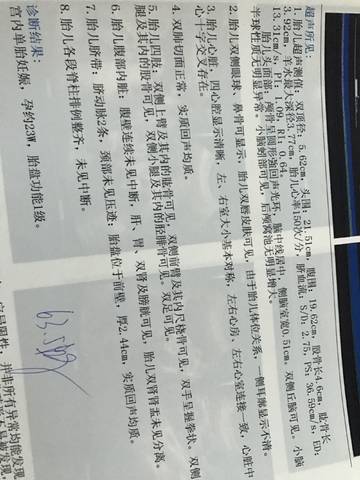 超声所见:
1. 胎儿超声测值: 双顶径: 5.62cm, 头围: 21.51cm, 腹围: 19.62cm, 股骨长4.6cm, 肱骨长
3.92cm, 羊水最大深径3.77cm, 胎儿心率150次/分, 脐血流: S/D: 2.75, PS: 36.59cm/s, ED:
13.31cm/s, PI: 0.99, RI: 0.64.
胎儿头面部: 颅骨呈圆形强回声光环, 脑中线居中, 侧脑室宽0.51cm, 双侧丘脑可见。小脑
半球性质无明显异常。小脑蚓部可见, 后颅窝池无明显增大。
2. 胎儿双侧眼球、鼻骨可显示, 胎儿双唇皮肤可见, 由于胎儿体位关系, 一侧耳廓显示不清。
3. 胎儿心脏, 四心腔显示清晰, 左、右室大小基本对称, 左右心房、左右心室连接一致, 心脏中
心十字交叉存在。
4. 双肺切面正常, 实质回声均质。
5. 胎儿四肢: 双侧上臂及其内的肱骨可见, 双侧前臂及其内尺桡骨可见, 双手呈握拳状。双侧
腿及其内的股骨可见, 双侧小腿及其内的胫腓骨可见。双足可见。
6. 胎儿腹部内脏: 腹壁连续未见中断, 肝、胃、双肾及膀胱可见, 胎儿双肾肾盂未见分离。
7. 胎儿脐带: 脐动脉2条, 颈部未见压迹; 胎盘位于前壁, 厚2.44cm, 实质回声均质。
8. 胎儿各段脊柱排列整齐, 未见中断。
诊断结果:
宫内单胎妊娠, 孕约23W, 胎盘功能I级。
63.5kg
并非所有异常均能发现